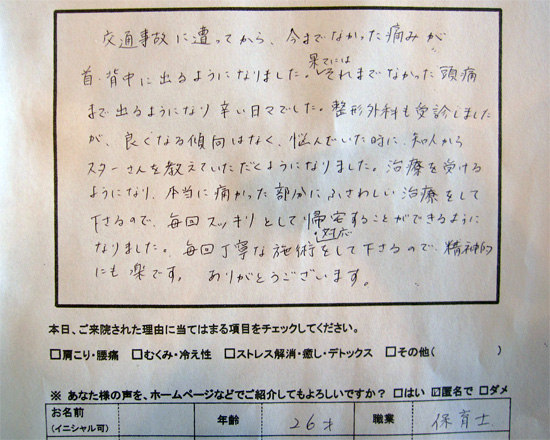 交通事故に遭ってから、今までなかった痛みが
首・背中に出るようになりました。果てにはそれまでなかった頭痛
まで出るようになり辛い日々でした。整形外科も受診しました
が、良くなる傾向はなく、悩んでいた時に、知人から
スターさんを教えていただくようになりました。治療を受ける
ようになり、本当に痛かった部分にふさわしい治療をして
下さるので、毎回スッキリとして帰宅することができるように
なりました。毎回丁寧な施術・対応をして下さるので、精神的
にも楽です。ありがとうございます。
本日、ご来院された理由に当てはまる項目をチェックしてください。
□肩こり・腰痛 □むくみ・冷え性 □ストレス解消・癒し・デトックス □その他( )
※ あなた様の声を、ホームページなどでご紹介してもよろしいですか? □はい ☑匿名で □ダメ
お名前 年齢 26才 職業 保育士
(イニシャル可)